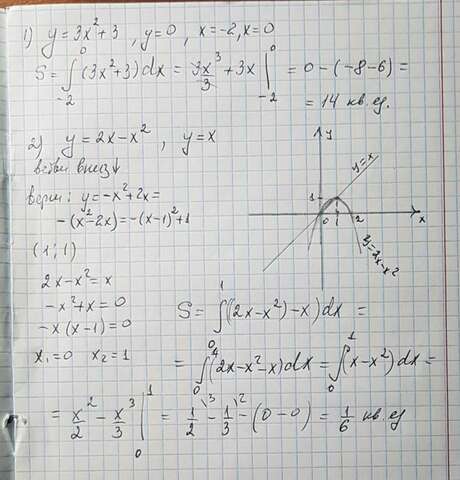 1) y=3x²+3 , y=0 , x=-2, x=0
S=∫₋₂⁰(3x²+3)dx = 3x³/3+3x |₋₂⁰ = 0-(-8-6)=
= 14 кв.ед.
2) y=2x-x² , y=x
ветви вниз↓
верш: y=-x²+2x=
-(x²-2x)=-(x-1)²+1
(1;1)
2x-x²=x
-x²+x=0
-x(x-1)=0
x₁=0 x₂=1
y
y=x
1
0 1 2 x
y=2x-x²
S=∫₀¹((2x-x²)-x)dx =
=∫₀(2x-x²-x)dx=∫₀¹(x-x²)dx=
= x²/2 - x³/3 |₀¹ = 1/2\3 - 1/3\2 -(0-0) = 1/6 кв.ед